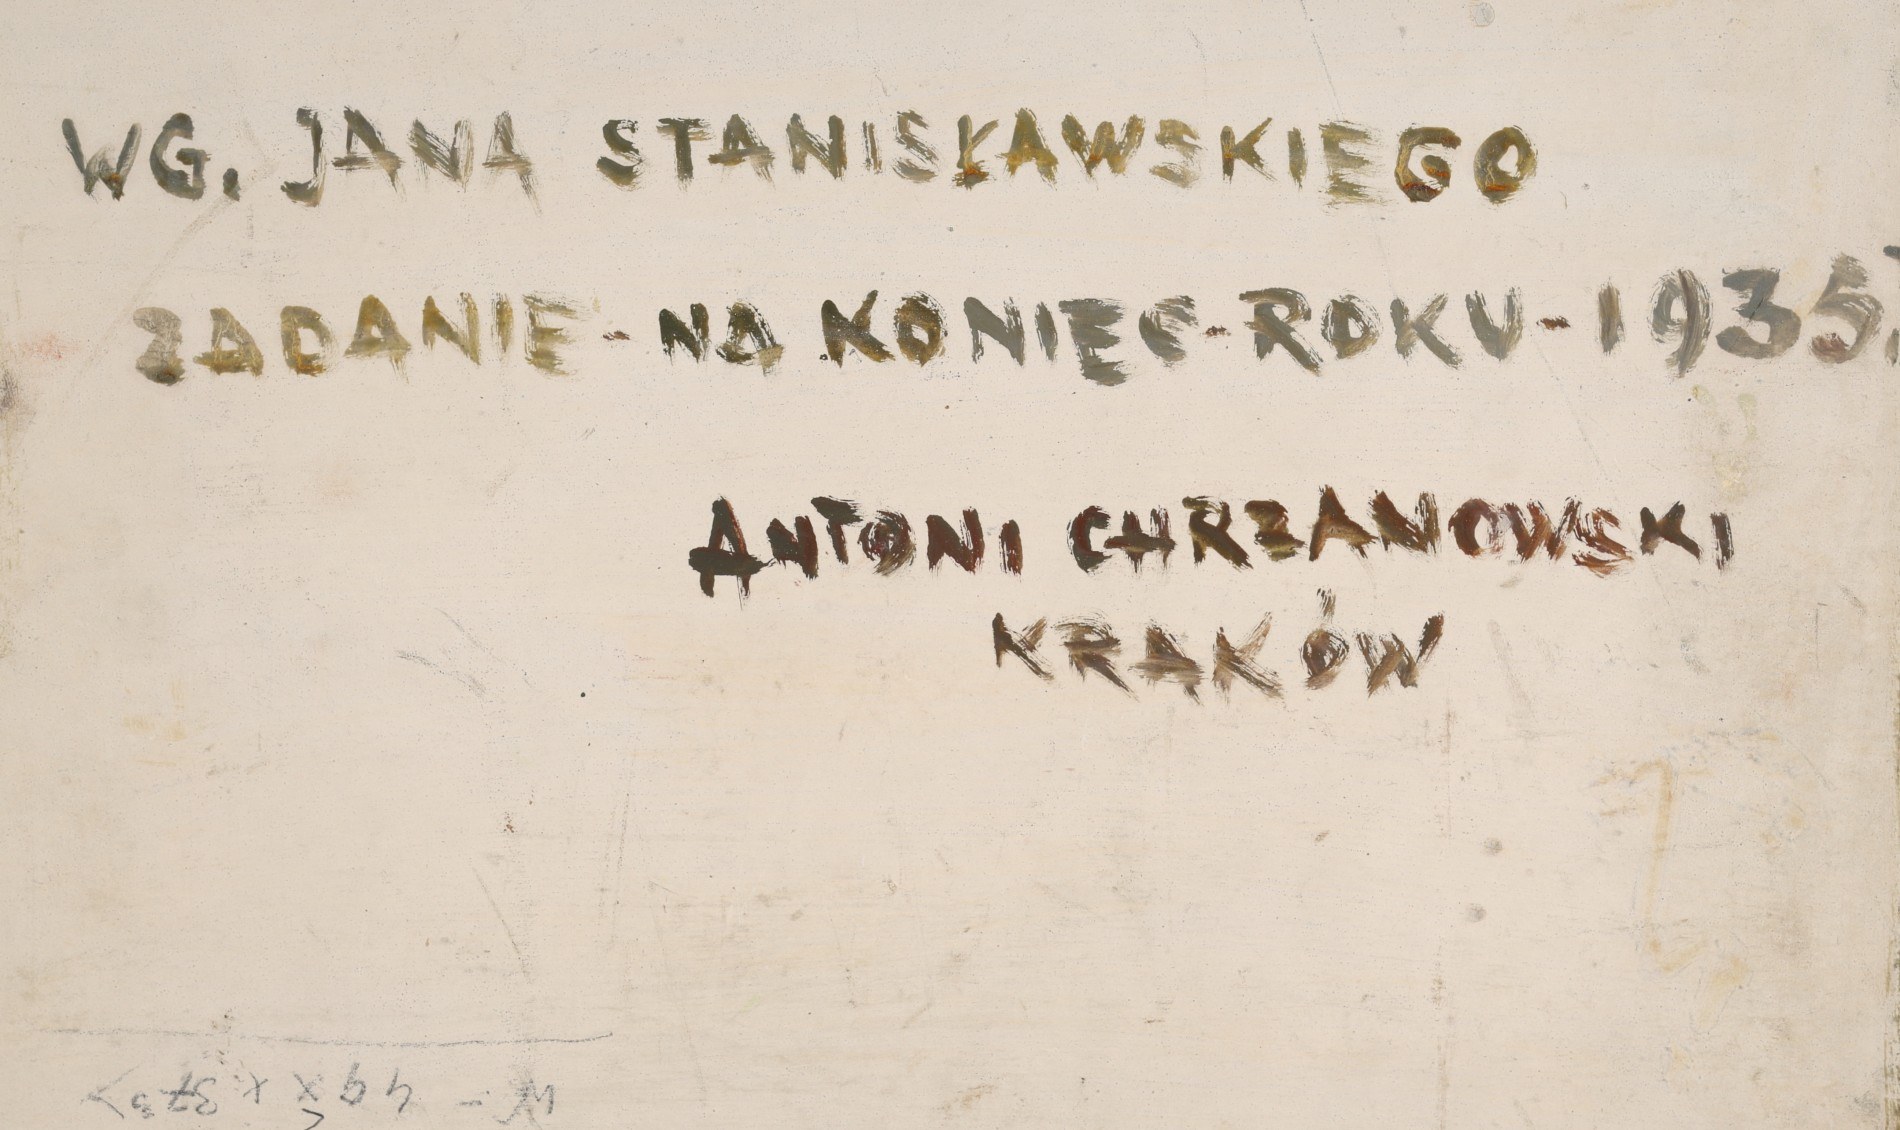 WG. JANA STANISŁAWSKIEGO
ZADANIE - NA KONIEC - ROKU - 1935
ANTONI CHRZANOWSKI
KRAKÓW